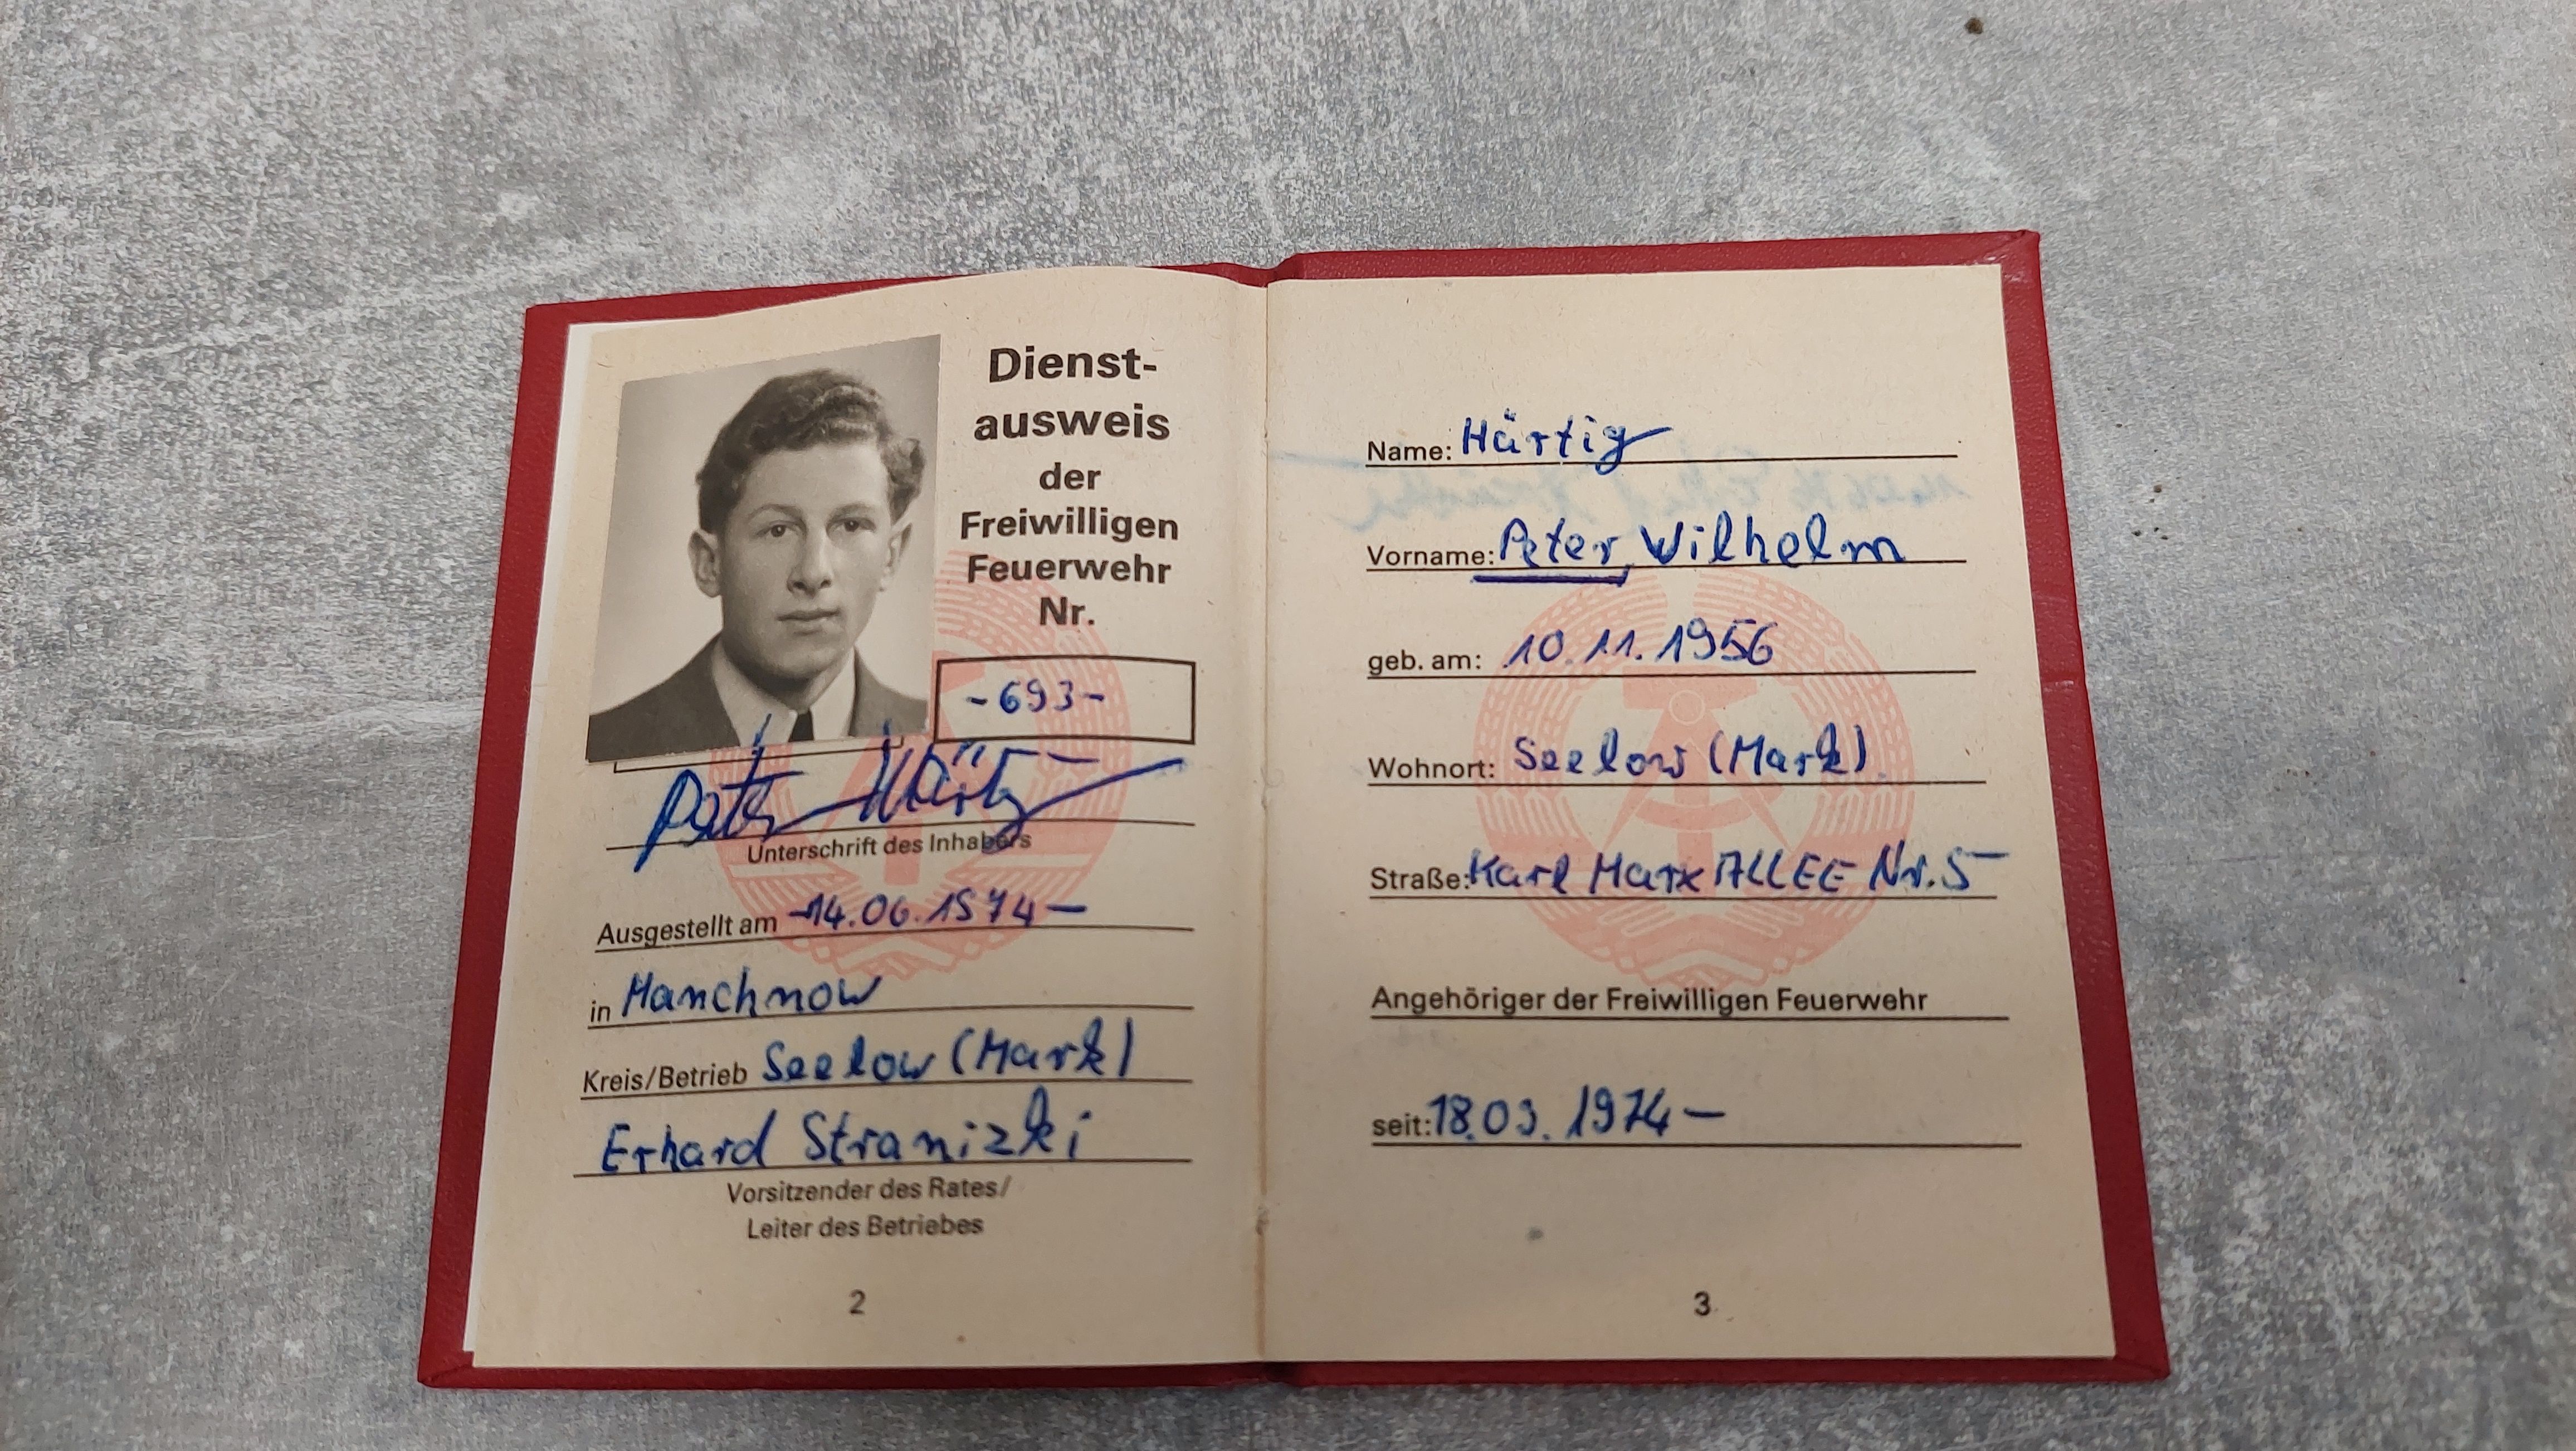 Dienst-
ausweis
der
Freiwilligen
Feuerwehr
Nr.
-693-
Peter Härtig
Unterschrift des Inhabers
Ausgestellt am -14.06.1974-
in Manchnow
Kreis/Betrieb Seelow (Mark)
Erhard Stranizki
Vorsitzender des Rates/
Leiter des Betriebes
2
Name: Härtig
Vorname: Peter, Wilhelm
geb. am: 10.11.1956
Wohnort: Seelow (Mark)
Straße: Karl Marx ALLEE Nr. 5
Angehöriger der Freiwilligen Feuerwehr
seit: 18.03.1974-
3